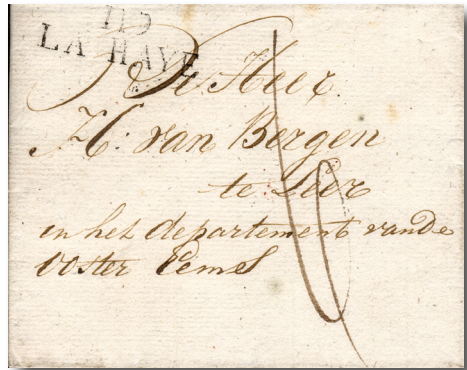 119
LA HAYE
De Heer
H. van Bergen
te Leer
in het departement van de
Ooster Eems